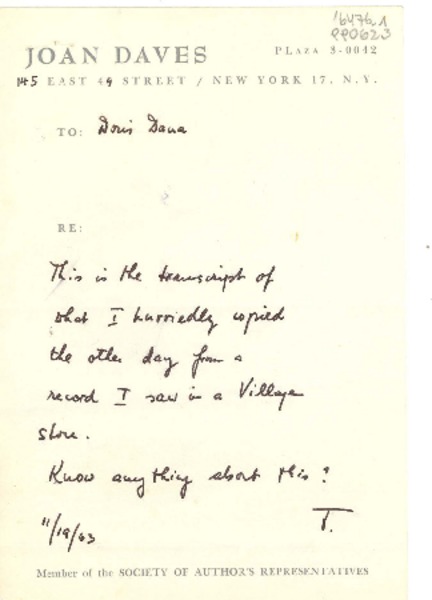 16476.1
PP0623
JOAN DAVES
PLAZA 3-0042
145 EAST 49 STREET / NEW YORK 17, N.Y.
TO: Doris Dana
RE:
This is the transcript of
what I hurriedly copied
the other day from a
record I saw in a Village
store.
Know anything about this?
T.
11/19/63
Member of the SOCIETY OF AUTHOR'S REPRESENTATIVES